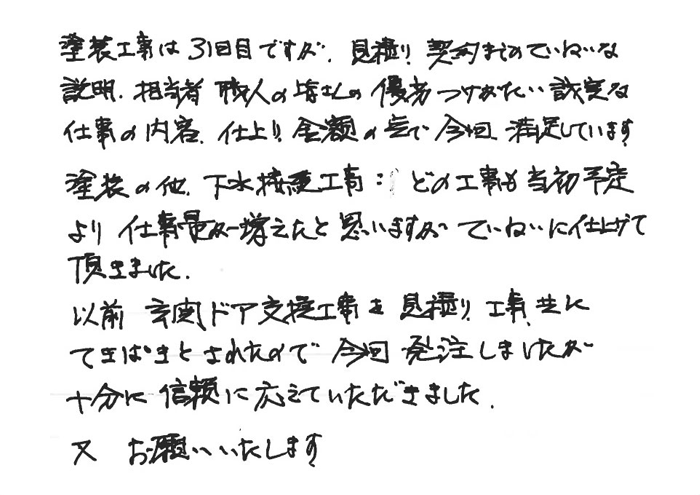 塗装工事は3回目ですが、見積り、契約までのていねいな
説明、担当者 職人の皆さんの優秀つけがたい誠実な
仕事の内容、仕上り、金額の点で今回、満足しています
塗装の他、下水接続工事: どの工事も当初予定
より仕事量が増えたと思いますがていねいに仕上げて
頂きました。
以前 玄関ドア交換工事を見積り、工事、共に
てきぱきとされたので今回 発注しましたが
十分に信頼に応えていただきました。
又 お願いいたします